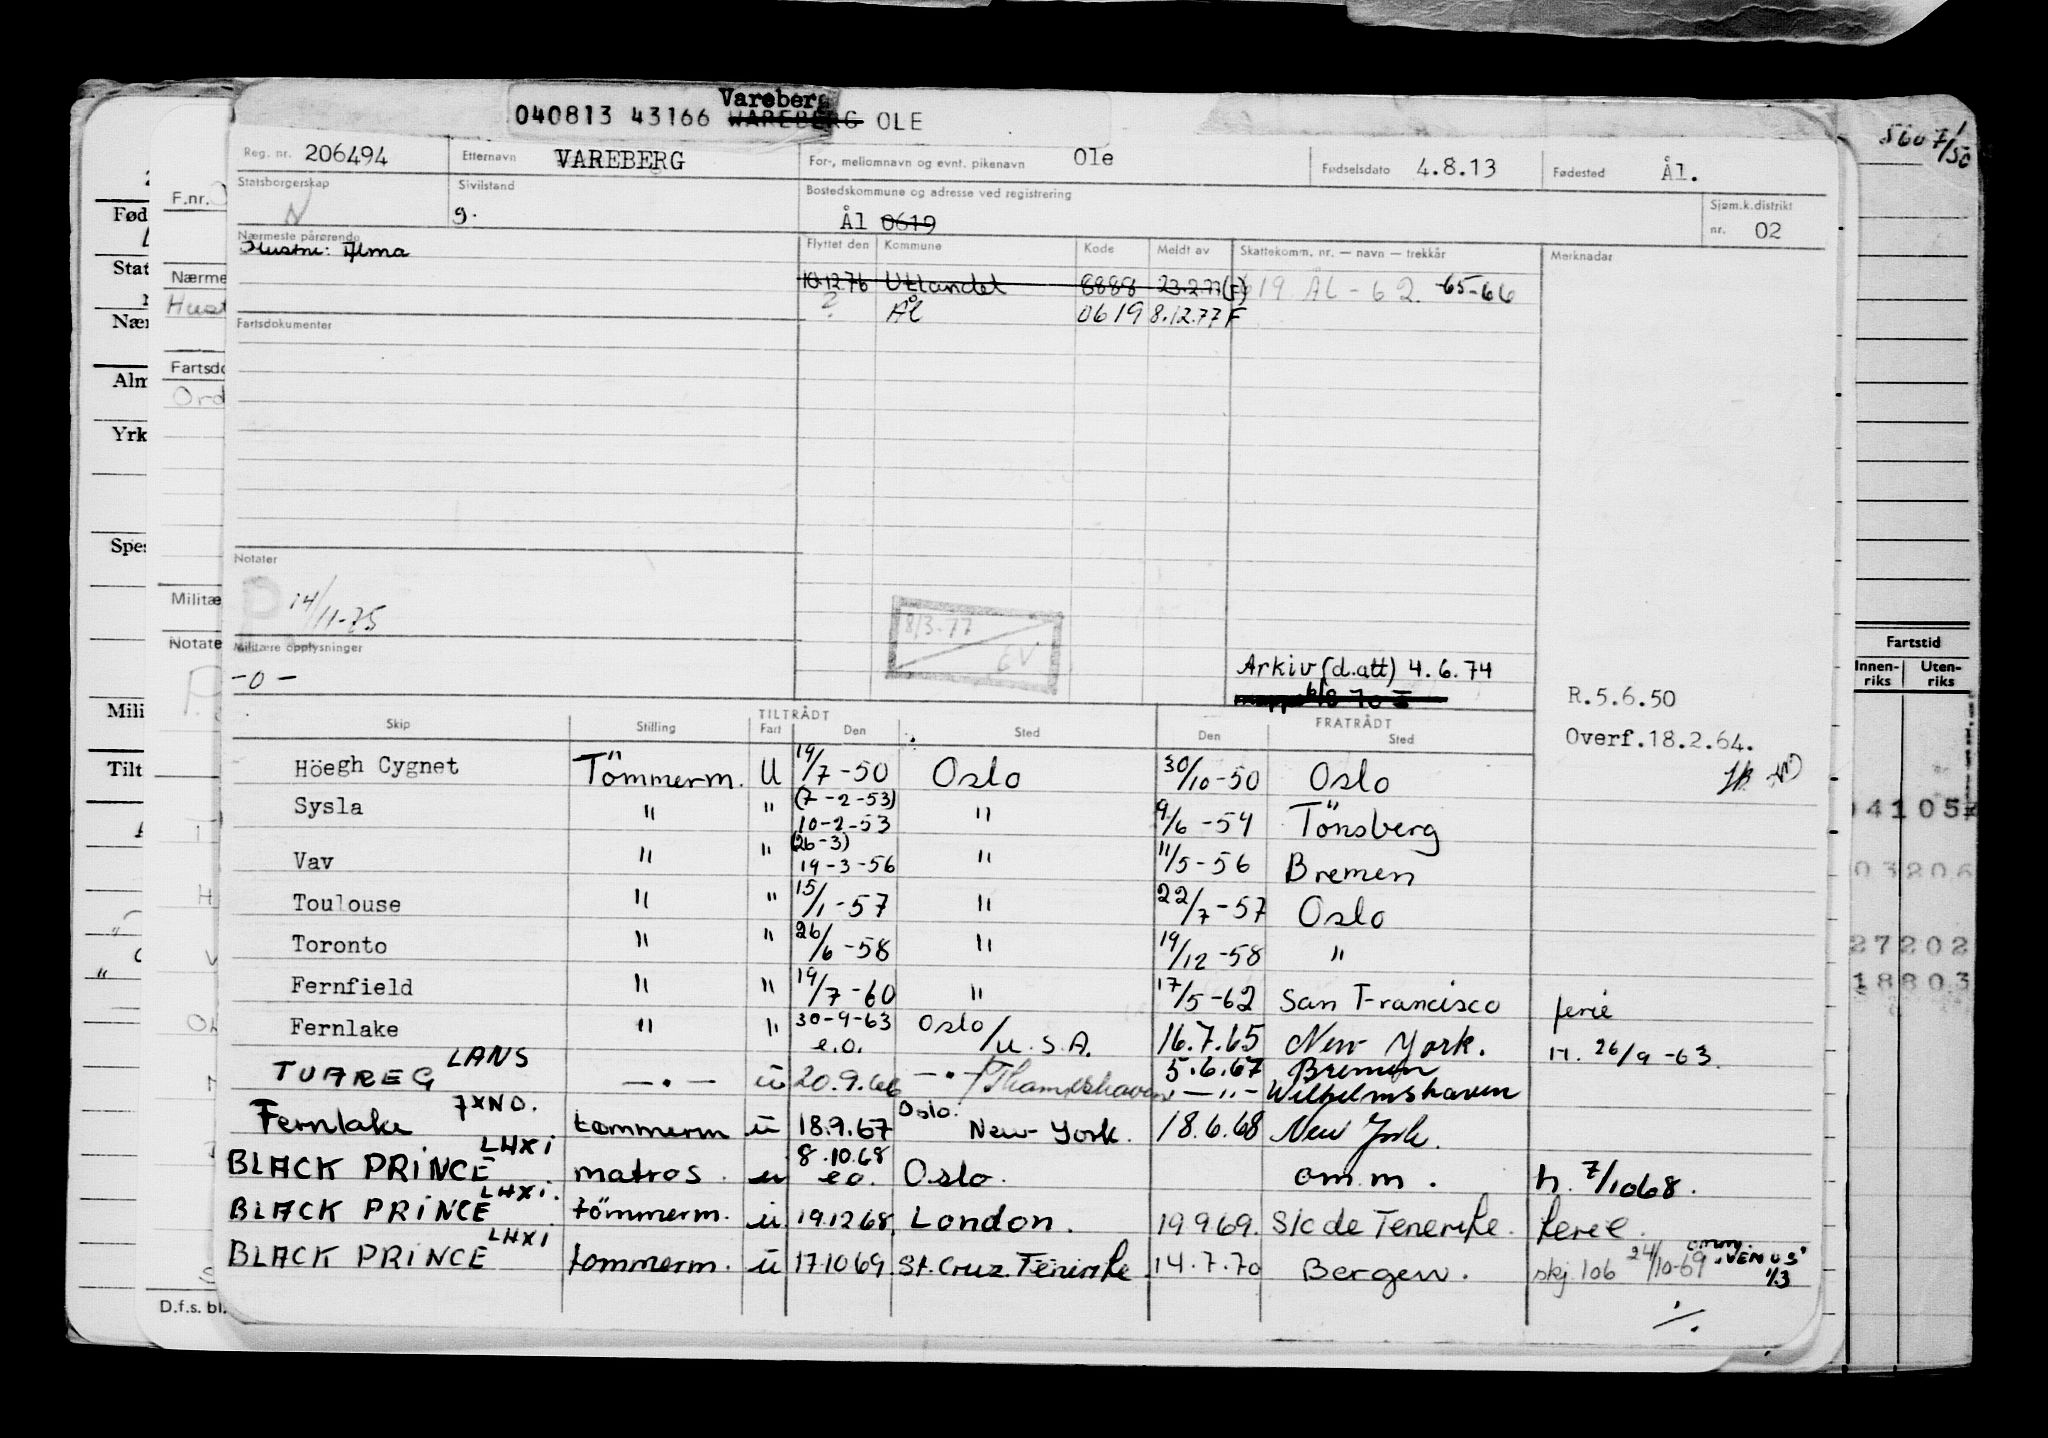 Vareberg
040813 43166 WAREBERG OLE
5607/50
Reg. nr. 206494 Etternavn VAREBERG For-, mellomnavn og evnt. pikenavn Ole Fødselsdato 4.8.13 Fødested Ål.
Statsborgerskap N Sivilstand g. Bostedskommune og adresse ved registrering Ål 0619 Sjøm.k.distrikt nr. 02
Nærmeste pårørende Hustru: Alma
Flyttet den Kommune Kode Meldt av Skattekomm. nr. — navn — trekkår Merknader
10.12.76 Utlandet 8888 23.2.77(F) 619 ÅL - 62. -65-66
? Ål 0619 8.12.77 F
Fartsdokumenter
Notater
14/11-75
8/3-77
Militære opplysninger
-0-
Arkiv (d.att) 4.6.74
R.5.6.50
Overf.18.2.64.
Skip Stilling TILTRÅDT Fart Den Sted FRATRÅDT Den Sted
Höegh Cygnet Tömmerm. U 19/7-50 Oslo 30/10-50 Oslo
Sysla " " (7-2-53) 10-2-53 " 9/6-54 Tönsberg
Vav " " (26-3) 19-3-56 " 11/5-56 Bremen
Toulouse " " 15/1-57 " 22/7-57 Oslo
Toronto " " 26/6-58 " 19/12-58 "
Fernfield " " 19/7-60 " 17/5-62 San Francisco ferie
Fernlake " " 30-9-63 e.o. Oslo/U.S.A. 16.7.65 New York. H. 26/9-63.
TUAREG LANS —•— u 20.9.66 —•—/ 5.6.67 Bremen
—"— Wilhelmshaven
Fernlake JXNO. tømmerm u 18.9.67 Oslo. New-York. 18.6.68 New York.
BLACK PRINCE LHXI matros. u 8.10.68 e.o. Oslo. om.m. h. 7/1068.
BLACK PRINCE LHXI. tömmerm. u. 19.12.68. London. 19.9.69. S/c de Tenerife. ferie.
BLACK PRINCE LHXI tømmerm. u 17.10.69. St. Cruz. Tenerife 14.7.70 Bergen. skj. 106 24/10-69 omm. "VENUS" 1/3
F.nr.
Nærme
Hust
Fartsdo
Ord
Militæ
Notate
D.f.s. bl.
Fød
Stat
Nær
Alm
Yrk
Spes
Mili
Tilt
Fartstid
Innen-riks Uten-riks
03206
27202
18803